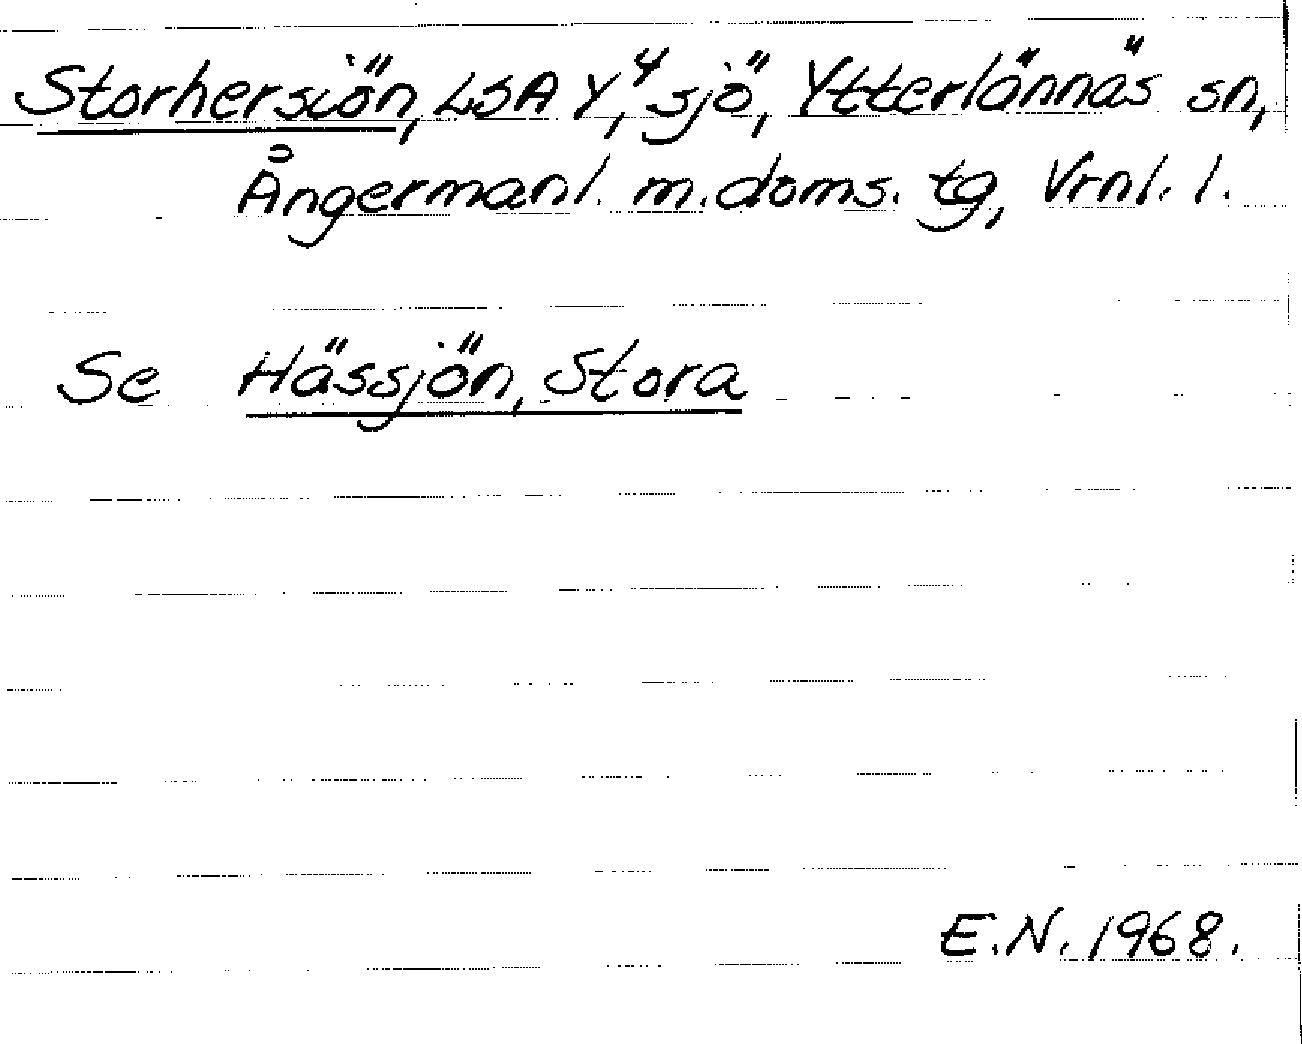 Storhersiön, LSA Y⁴, sjö, Ytterlännäs sn,
Ångermanl. m. doms. tg, Vrnl. l.
Se Hässjön, Stora
E.N. 1968.